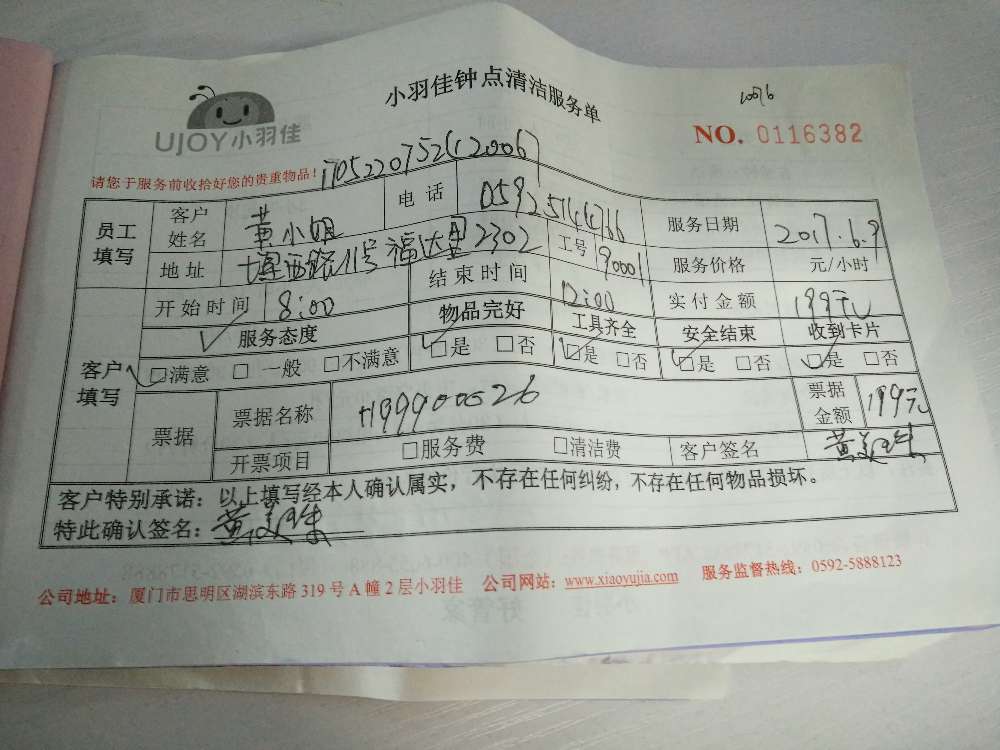 小羽佳钟点清洁服务单
UJOY小羽佳
10076
NO. 0116382
请您于服务前收拾好您的贵重物品!
员工填写 客户姓名 黄小姐 电话 05925144766 服务日期 2017.6.9
地址 11号福达里A2302 工号 90001 服务价格 元/小时
开始时间 8:00 结束时间 12:00 实付金额 199元
客户填写 服务态度 物品完好 工具齐全 安全结束 收到卡片
☑满意 □一般 □不满意 ☑是 □否 ☑是 □否 ☑是 □否 ☑是 □否
票据 票据名称 H99900026 票据金额 199元
开票项目 □服务费 □清洁费 客户签名
客户特别承诺:以上填写经本人确认属实,不存在任何纠纷,不存在任何物品损坏。
特此确认签名:
公司地址:厦门市思明区湖滨东路319号A幢2层小羽佳 公司网站:www.xiaoyujia.com 服务监督热线:0592-5888123